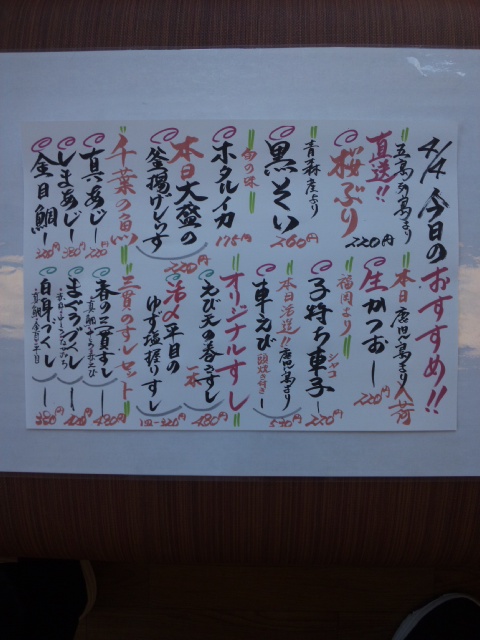 4/4 今日のおすすめ!!
五島列島より
直送!!
桜ぶり
220円
青森産より
黒そい
260円
旬の味
ホタルイカ
175円
本日大盛の
釜揚げしらす
220円
千葉の魚
真あじ
220円
しまあじ
380円
金目鯛
320円
本日鹿児島より入荷
生かつお
220円
福岡より
子持ち車子
シャコ
220円
本日活送!!鹿児島より
車えび
頭焼き付き
530円
オリジナルすし
えび天の巻ずし
一本
480円
活〆平目の
ゆず塩握りすし
三貫のすしセット
春の三貫すし
480円
まぐろづくし
白身づくし